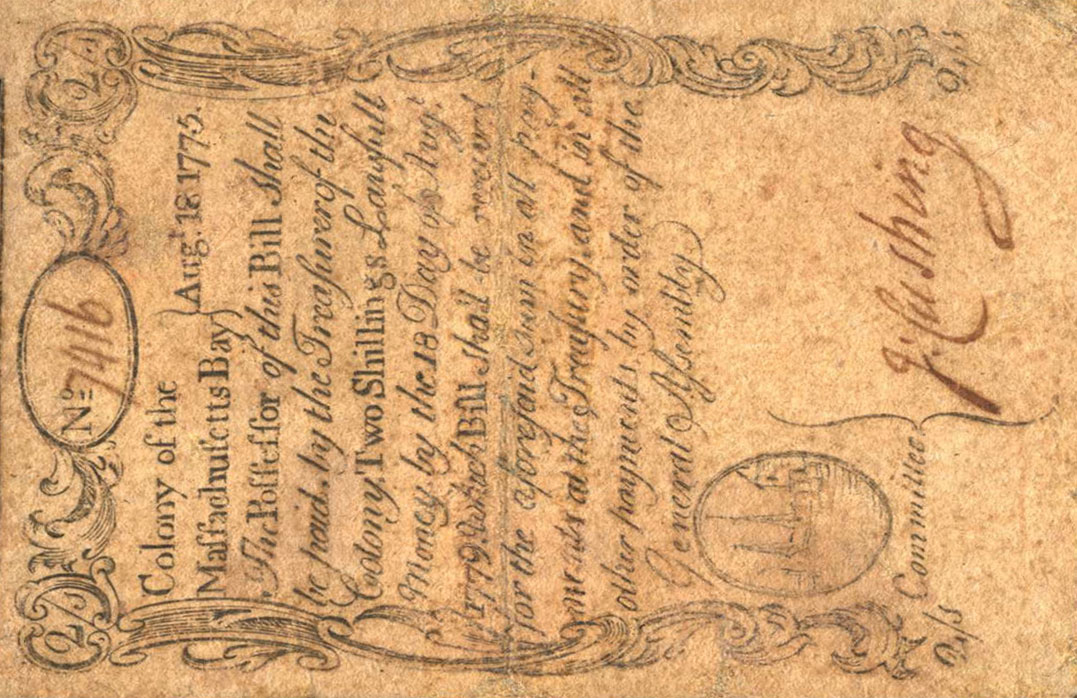 2/
No 7416
2/
Colony of the
Maſſachuſetts Bay } Aug.t 18 1775.
The Poſſeſſor of this Bill Shall
be paid, by the Treaſurer of the
Colony, Two Shillings, Lawfull
Money by the 18 Day of Aug.t
1779. Which Bill Shall be received
for the aforeſaid Sum in all Pay-
ments at the Treaſury, and in all
other payments, by order of the
General Aſsembly
2/s
Committee
J. Cushing
2/s